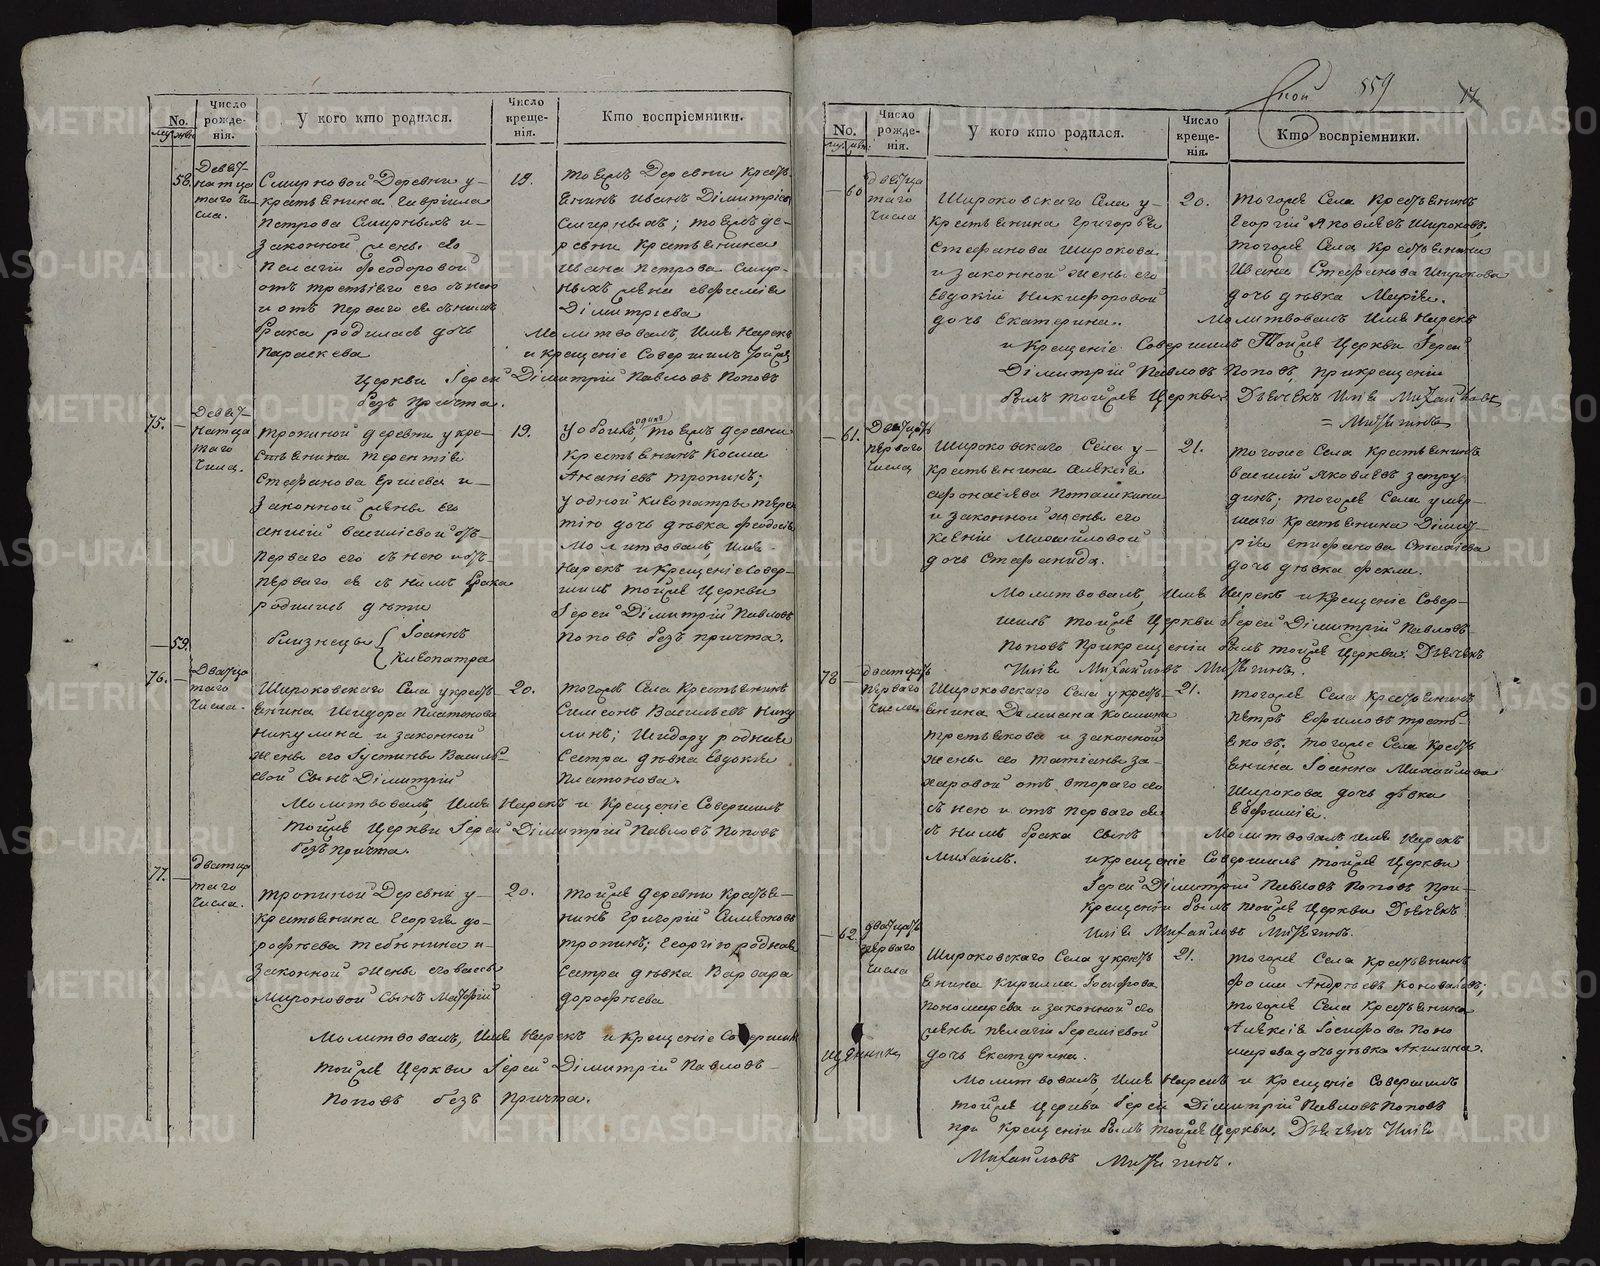 No.
Число рожде-
нія.
У кого кто родился.
Число креще-
нія.
Кто воспріемники.
58.
Девят-
натца
таго Чи-
сла.
Смирновой Деревни у-
крестьянина Гавріила
Петрова Смирныхъ и-
Законной жены его
Пелагіи Феодоровой
отъ третьяго его съ нею
и отъ перваго ея съ нимъ
брака родилась дочь
Параскева
19.
тоежъ Деревни Крестъ-
янинъ Иванъ Дімитріевъ
Смирныхъ; тоежъ де-
ревни Крестьянина
Ивана Петрова Смир-
ныхъ жена Евфимія
Дімитріева
Молитвовалъ, Имя Нарекъ
и крещеніе Совершилъ тойже
Церкви Іерей Дімитрій Павловъ Поповъ
безъ Причта.
75.
Девят-
натца
таго
Числа.
Тропиной деревни у кре-
стьянина Терентія
Стефанова Ершева и-
Законной жены его
Василіевой отъ
перваго его съ нею и отъ
перваго ея съ нимъ брака
родились дѣти
59.
близнецы { Іоаннъ
Клеопатра
19.
у обоихъ одинъ, тоежъ деревни
Крестьянинъ Косма
Ананіевъ Тропинъ;
у одной Клеопатры
дочь дѣвка Феодосія
Молитвовалъ, Имя-
Нарекъ и Крещеніе Совер-
шилъ тойже Церкви
Іерей Дімитрій Павловъ
Поповъ безъ причта.
76.
Дватца
таго
Числа.
Широковскаго Села у крестъ-
янина Исидора Платонова
Никулина и законной
жены его Іустины Василь-
евой Сынъ Дімитрій
20.
тогожъ Села Крестьянинъ
Симеонъ Васильевъ Нику
линъ; Исидору родная
Сестра дѣвка Евдокія
Платонова.
Молитвовалъ, Имя Нарекъ и Крещеніе Совершилъ
тойже Церкви Іерей Дімитрій Павловъ Поповъ
безъ причта.
77.
Дватца
таго
Числа.
Тропиной Деревни у-
крестьянина Георгія до-
рофѣева Тебнина и-
Законной жены его Вассы
Мироновой Сынъ Матфій
20.
тойже деревни Крестья-
нинъ Григорій Симеоновъ
Тропинъ; Георгію родная
Сестра дѣвка Варвара
Дорофѣева
Молитвовалъ, Имя Нарекъ и Крещеніе Совершилъ
тойже Церкви Іерей Дімитрій Павловъ-
Поповъ безъ Причта.
ской 559
No.
Число рожде-
нія.
У кого кто родился.
Число креще-
нія.
Кто воспріемники.
60
Дватца
таго
Числа
Широковскаго Села у-
крестьянина Григорья
Стефанова Широкова
и законной жены его
Евдокіи Никифоровой
дочь Екатерина.
20.
тогоже Села Крестьянинъ
Георгій Яковлевъ Широковъ,
тогоже Села Крестьянина
Ивана Стефанова Широкова
дочь дѣвка Марія.
Молитвовалъ Имя Нарекъ
и Крещеніе Совершилъ Тойже Церкви Іерей
Дімитрій Павловъ Поповъ, при крещеніи
былъ тойже Церкви Дьячекъ Илія Михайловъ
61.
Дватцать
перваго
Числа
Широковскаго Села у-
крестьянина Алексія
Афонасьева Поташкина
и Законной жены его
Ксеніи Михайловой
дочь Стефанида.
21.
тогоже Села Крестьянинъ
Василій Яковлевъ
тогоже Села умер-
шаго Крестьянина Діми-
рія Епифанова
дочь дѣвка Фекла.
Молитвовалъ, Имя Нарекъ и Крещеніе Совер-
шилъ тойже Церкви Іерей Дімитрій Павловъ-
Поповъ При крещеніи былъ тойже Церкви: Дьячекъ
Илія Михайловъ
78
дватцать
перваго
Числа
Широковскаго Села у крестъ-
янина Даміана Космина
Третьякова и законной
жены его Татіаны За-
харовой отъ втораго его
съ нею и отъ перваго ея
съ нимъ брака сынъ
Михаилъ.
21.
тогоже Села Крестьянинъ
Петръ Ефимовъ Треть-
яковъ, тогоже Села Кресть
янина Іоанна Михайлова
Широкова дочь дѣвка
Евфимія.
Молитвовалъ Имя Нарекъ
и крещеніе Совершилъ тойже Церкви
Іерей Дімитрій Павловъ Поповъ При-
Крещеніи былъ тойже Церкви Дьячекъ
Илія Михайловъ
62
дватцать
перваго
числа
Широковскаго Села у крестъ
янина Кирилла Іосифова
Пономарева и законной его
жены Пелагіи Іереміевой
дочь Екатерина.
21.
тогоже Села Крестьянинъ
Фома Андреевъ Коноваловъ;
тогоже Села Крестьянина
Алексія Іосифова Поно
марева дочь дѣвка Акилина.
Молитвовалъ, Имя Нарекъ и Крещеніе Совершилъ
тойже Церкви Іерей Дімитрій Павловъ Поповъ
при Крещеніи былъ тойже Церкви, Дьячекъ Илія
Михайловъ
METRIKI.GASO-URAL.RU